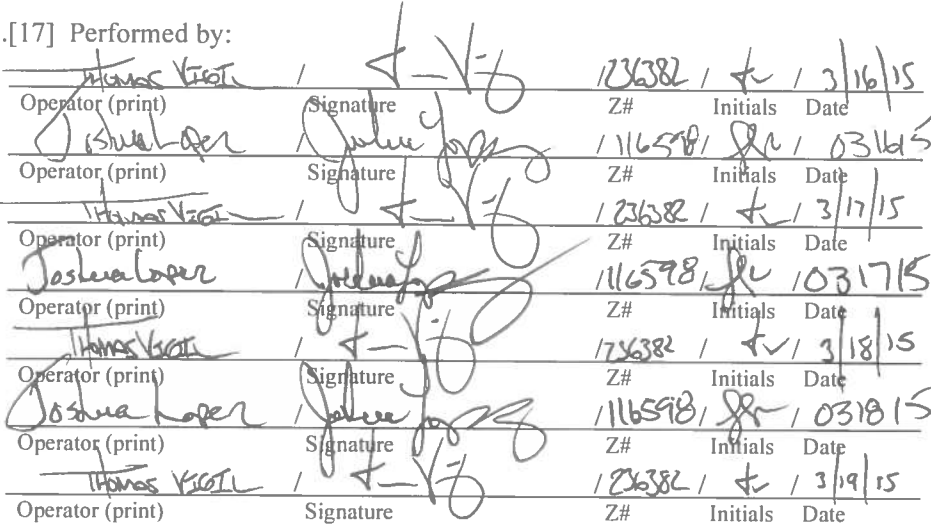 .[17] Performed by:
THOMAS VIGIL / T_Vig / 236382 / tv / 3/16/15
Operator (print) Signature Z# Initials Date
Joshua Lopez / Joshua Lopez / 116598 / JL / 031615
Operator (print) Signature Z# Initials Date
THOMAS VIGIL / T_Vig / 236382 / tv / 3/17/15
Operator (print) Signature Z# Initials Date
Joshua Lopez / Joshua Lopez / 116598 / JL / 031715
Operator (print) Signature Z# Initials Date
THOMAS VIGIL / T_Vig / 236382 / tv / 3/18/15
Operator (print) Signature Z# Initials Date
Joshua Lopez / Joshua Lopez / 116598 / JL / 031815
Operator (print) Signature Z# Initials Date
THOMAS VIGIL / T_Vig / 236382 / tv / 3/19/15
Operator (print) Signature Z# Initials Date